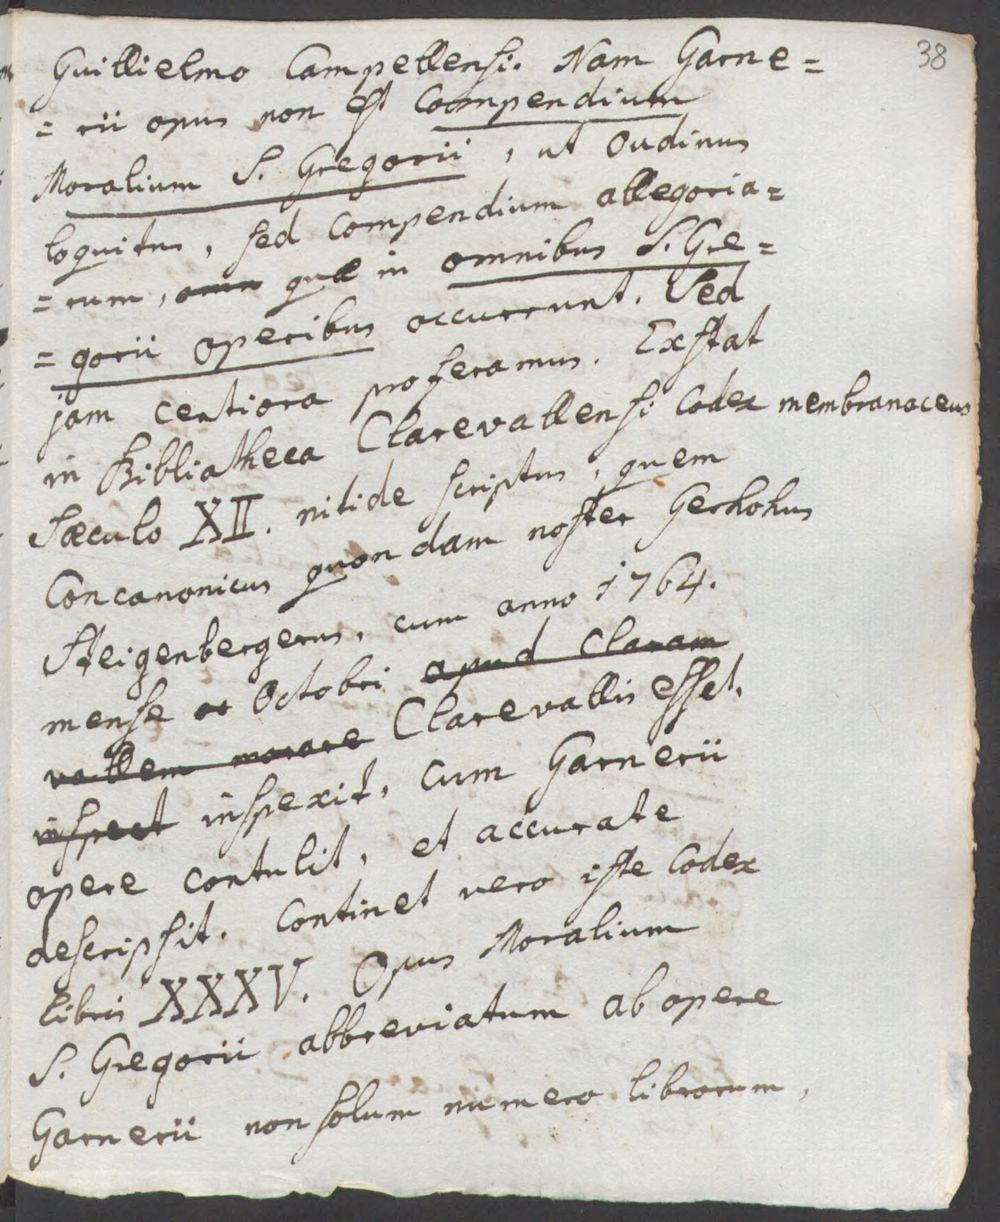 38
Guillielmo Campellensi. Nam Garne=
= rii opus non est Compendium
Moralium S. Gregorii, ut Oudinus
loquitur, sed compendium allegoria=
= rum, omn quæ in omnibus S. Gre=
= gorii operibus occurrunt. Sed
jam certiora proferamus. Exstat
in Bibliotheca Clarevallensi Codex membranaceus
Sæculo XII. nitide scriptus, quem
Concanonicus quondam noster Gerhohus
Steigenbergerus, cum anno 1764.
mense oc Octobri apud Claram
vallem morare Clarevallis esset,
inspect inspexit, cum Garnerii
opere contulit, et accurate
descripsit. Continet vero iste Codex
libris XXXV. Opus Moralium
S. Gregorii abbreviatum ab opere
Garnerii non solum numero librorum,